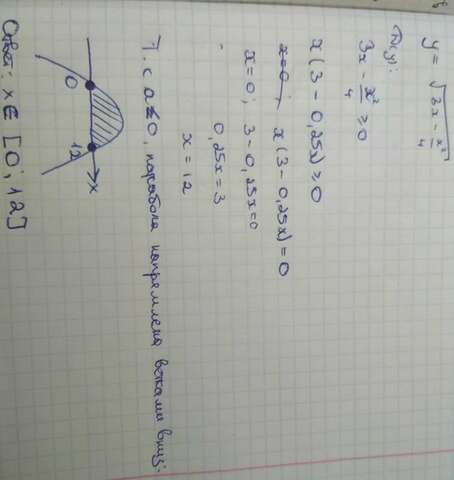 y = √(3x - x²/4)
D(y):
3x - x²/4 ≥ 0
x(3 - 0,25x) ≥ 0
x(3 - 0,25x) = 0
x = 0; 3 - 0,25x = 0
0,25x = 3
x = 12
Т. к a<0, парабола напрямлена ветками вниз:
0 12 x
Ответ: x ∈ [0; 12]